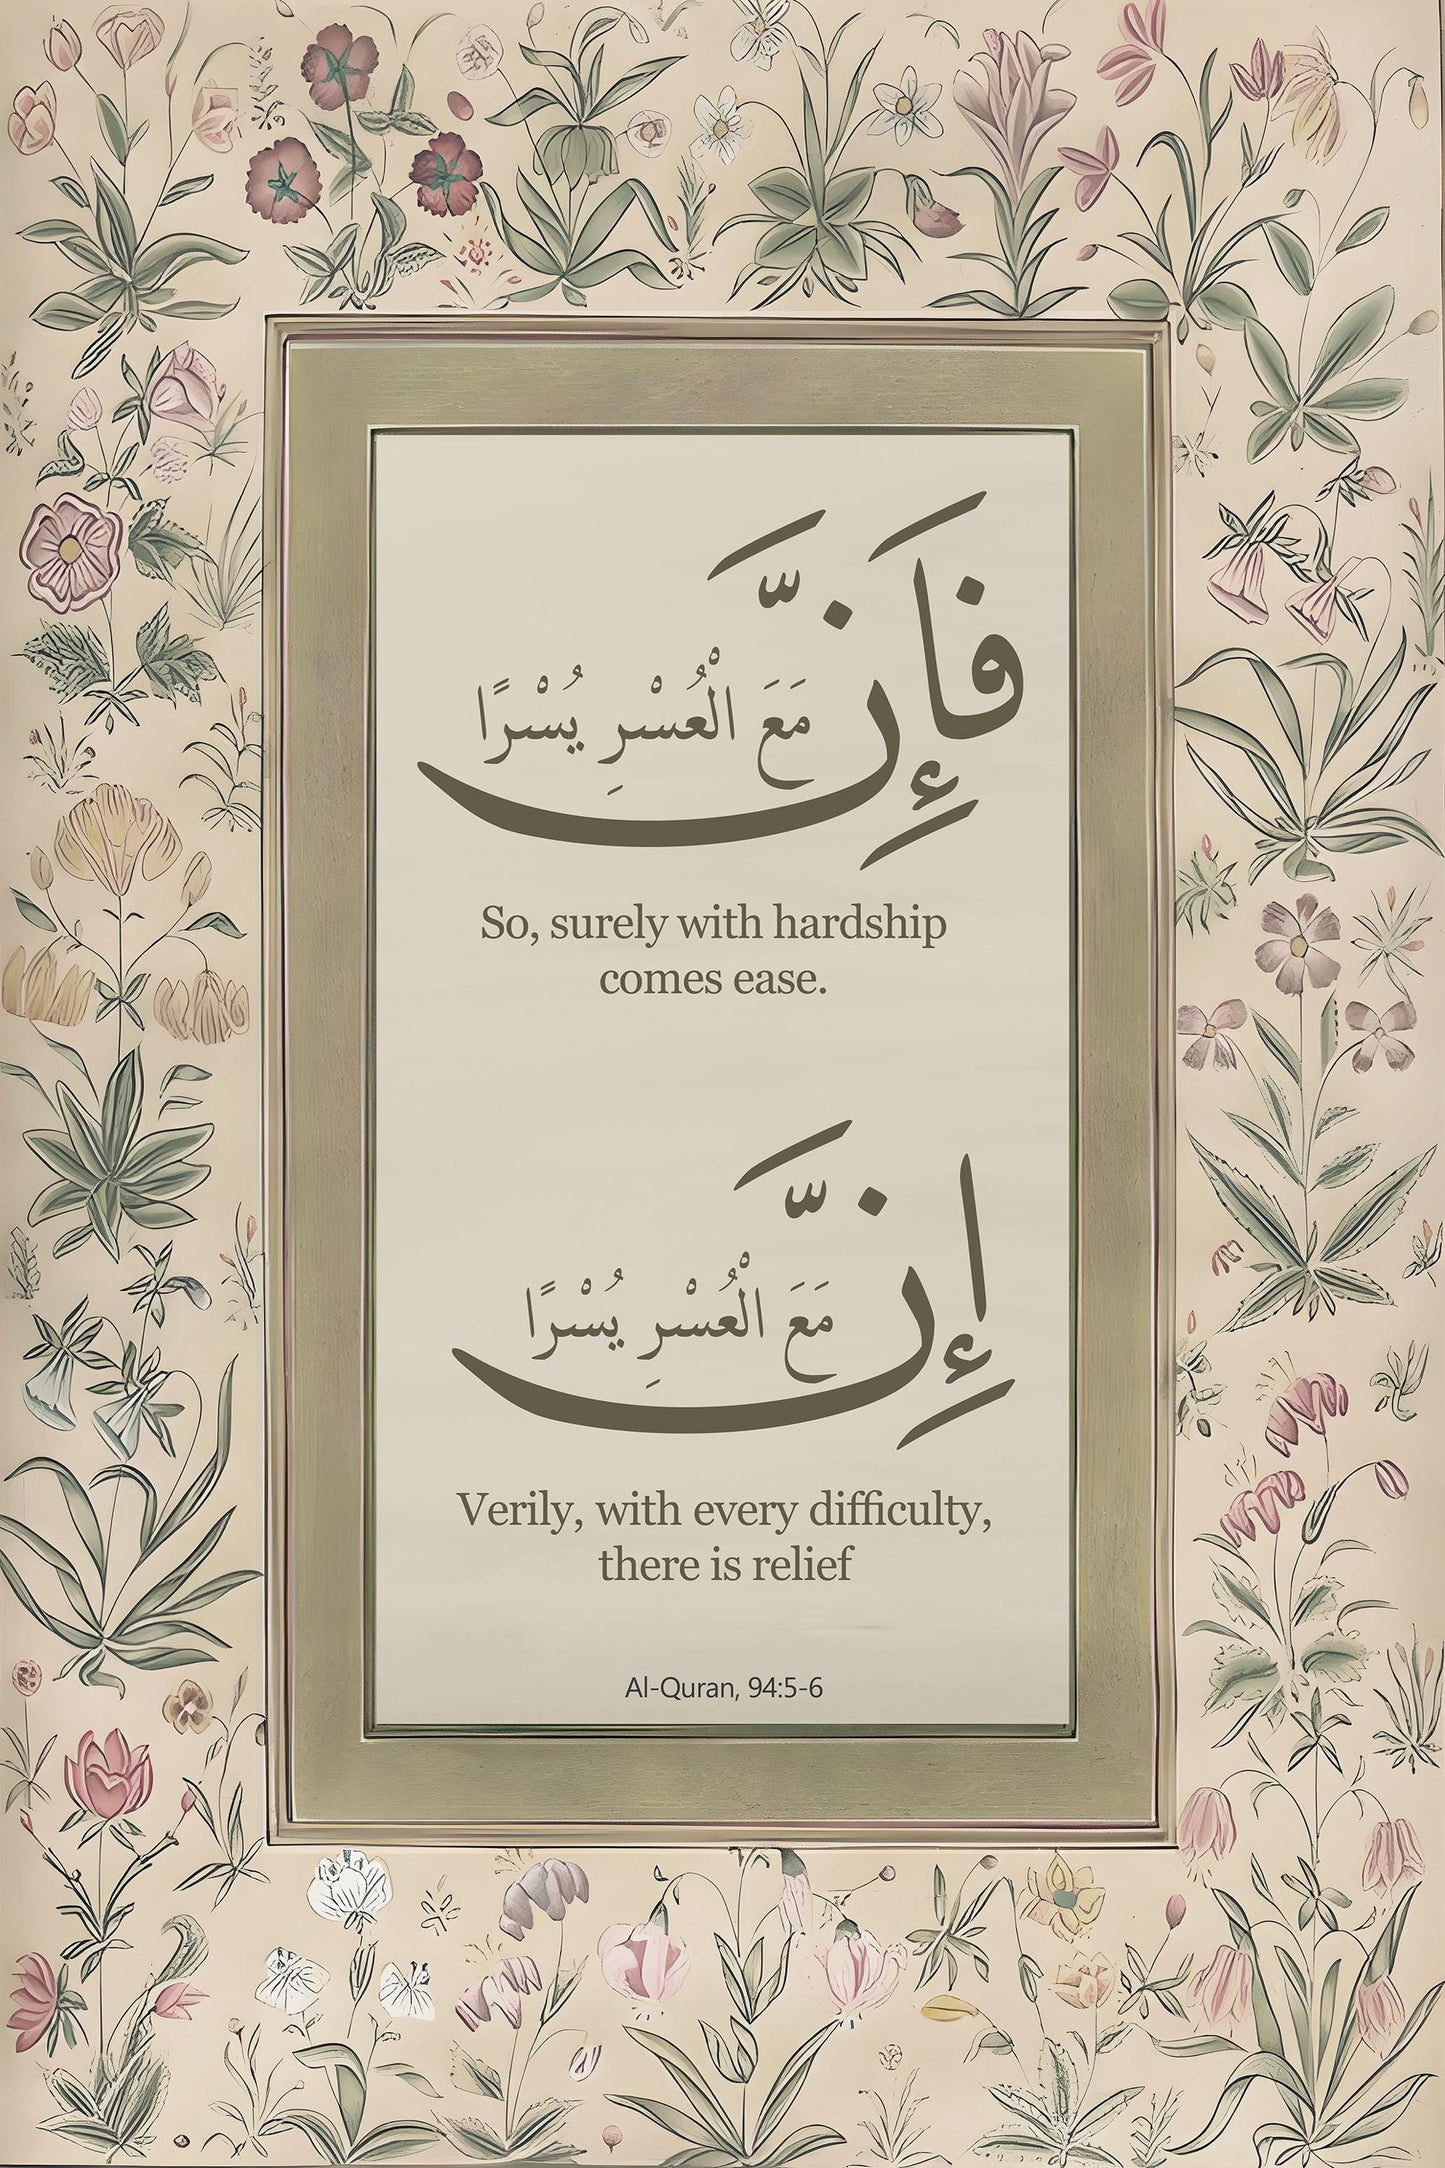 فَإِنَّ مَعَ الْعُسْرِ يُسْرًا
So, surely with hardship
comes ease.
إِنَّ مَعَ الْعُسْرِ يُسْرًا
Verily, with every difficulty,
there is relief
Al-Quran, 94:5-6